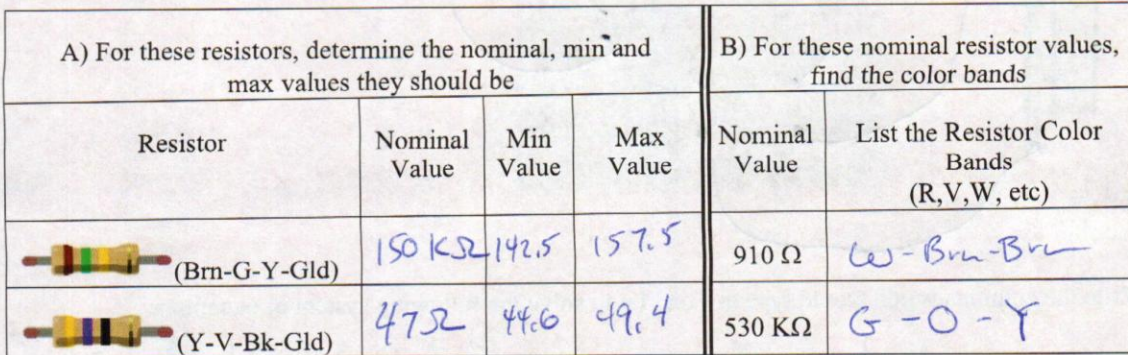 A) For these resistors, determine the nominal, min and
max values they should be
B) For these nominal resistor values,
find the color bands
Resistor
Nominal
Value
Min
Value
Max
Value
Nominal
Value
List the Resistor Color
Bands
(R,V,W, etc)
(Brn-G-Y-Gld) 150 KΩ 142.5 157.5 910 Ω W-Brn-Brn
(Y-V-Bk-Gld) 47Ω 44.6 49.4 530 KΩ G-O-Y